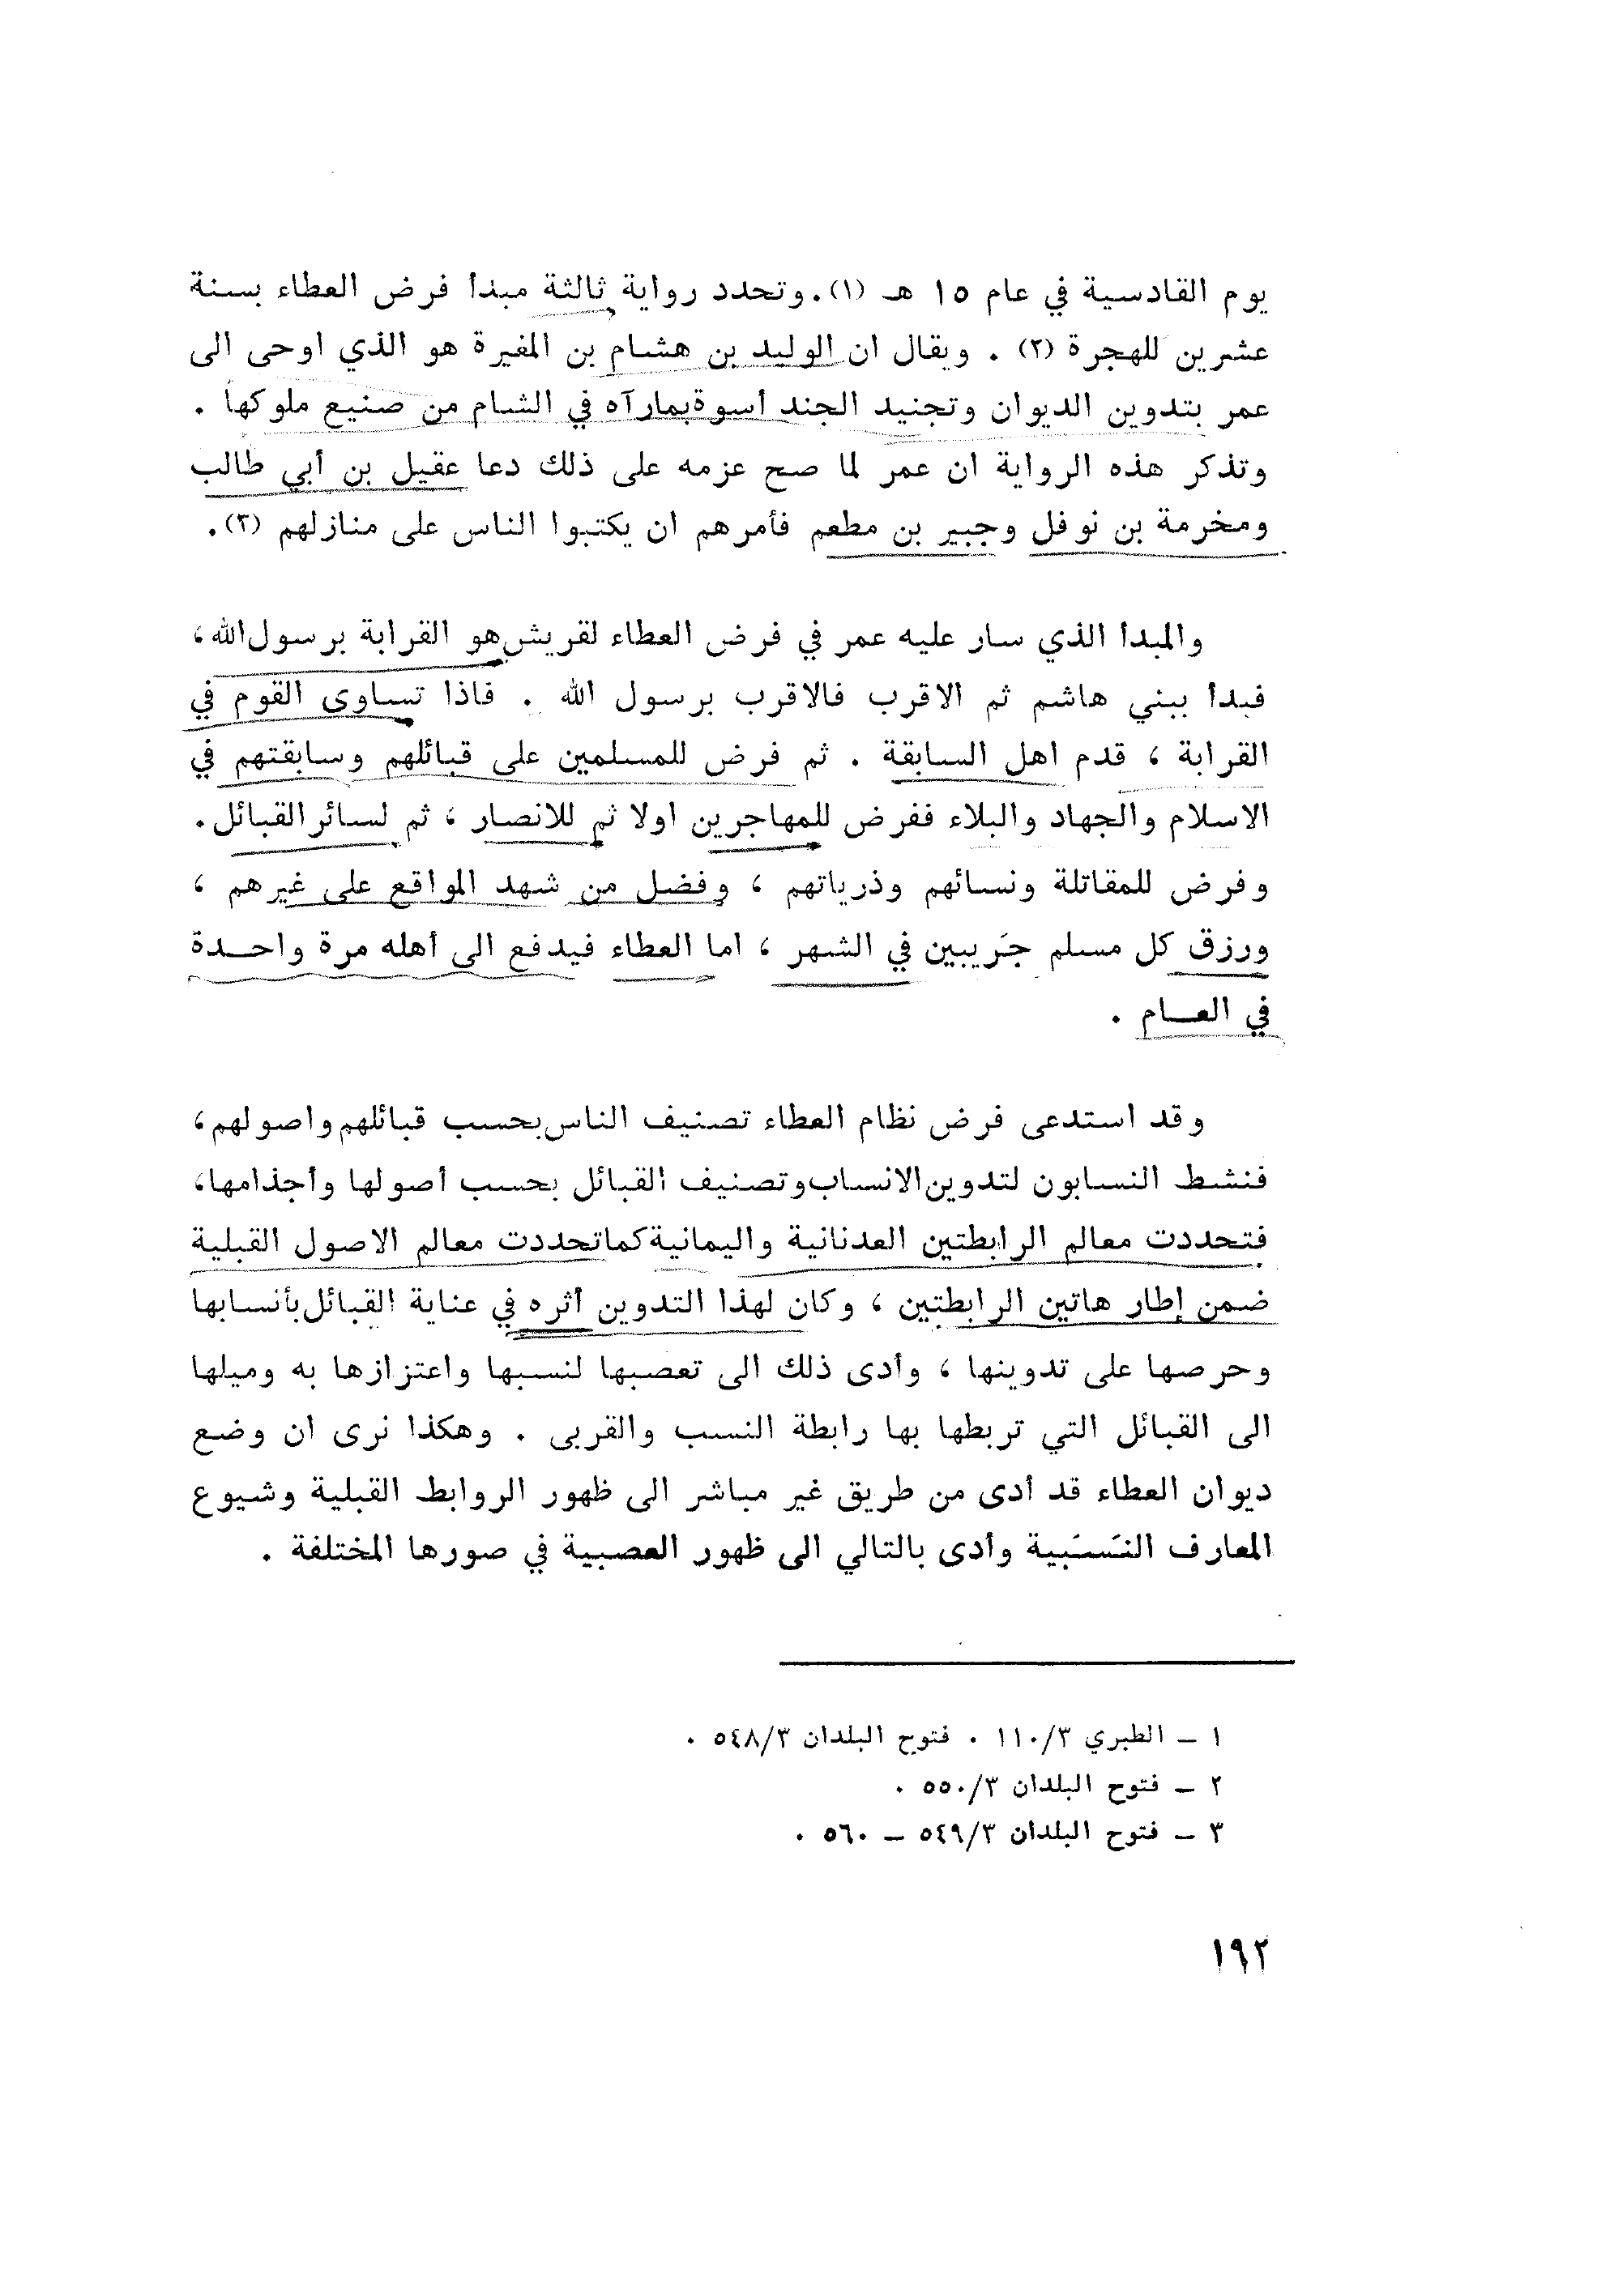 يوم القادسية في عام ١٥ هـ (١). وتحدد رواية ثالثة مبدأ فرض العطاء بسنة
عشرين للهجرة (٢) . ويقال ان الوليد بن هشام بن المغيرة هو الذي اوحى الى
عمر بتدوين الديوان وتجنيد الجند أسوة بما رآه في الشام من صنيع ملوكها .
وتذكر هذه الرواية ان عمر لما صح عزمه على ذلك دعا عقيل بن أبي طالب
ومخرمة بن نوفل وجبير بن مطعم فأمرهم ان يكتبوا الناس على منازلهم (٣).
والمبدأ الذي سار عليه عمر في فرض العطاء لقريش هو القرابة برسول الله ،
فبدأ ببني هاشم ثم الاقرب فالاقرب برسول الله . فاذا تساوى القوم في
القرابة ، قدم اهل السابقة . ثم فرض للمسلمين على قبائلهم وسابقتهم في
الاسلام والجهاد والبلاء ففرض للمهاجرين اولا ثم للانصار ، ثم لسائر القبائل .
وفرض للمقاتلة ونسائهم وذرياتهم ، وفضل من شهد المواقع على غيرهم ،
ورزق كل مسلم جَريبين في الشهر ، اما العطاء فيدفع الى أهله مرة واحـــدة
في العـــام .
وقد استدعى فرض نظام العطاء تصنيف الناس بحسب قبائلهم واصولهم ،
فنشط النسابون لتدوين الانساب وتصنيف القبائل بحسب أصولها وأجذامها ،
فتحددت معالم الرابطتين العدنانية واليمانية كما تحددت معالم الاصول القبلية
ضمن إطار هاتين الرابطتين ، وكان لهذا التدوين أثره في عناية القبائل بأنسابها
وحرصها على تدوينها ، وأدى ذلك الى تعصبها لنسبها واعتزازها به وميلها
الى القبائل التي تربطها بها رابطة النسب والقربى . وهكذا نرى ان وضع
ديوان العطاء قد أدى من طريق غير مباشر الى ظهور الروابط القبلية وشيوع
المعارف النَسَبية وأدى بالتالي الى ظهور العصبية في صورها المختلفة .
١ ــ الطبري ١١٠/٣ . فتوح البلدان ٥٤٨/٣ .
٢ ــ فتوح البلدان ٥٥٠/٣ .
٣ ــ فتوح البلدان ٥٤٩/٣ ــ ٥٦٠ .
١٩٢